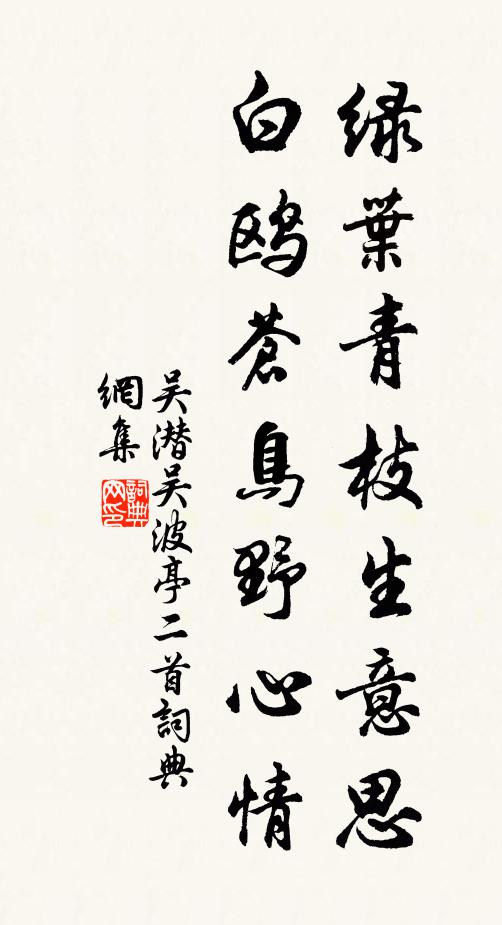 绿葉青枝生意思
白鸥蒼鳥野心情
吴潜吴波亭二首詞典
網集
詞典
网印